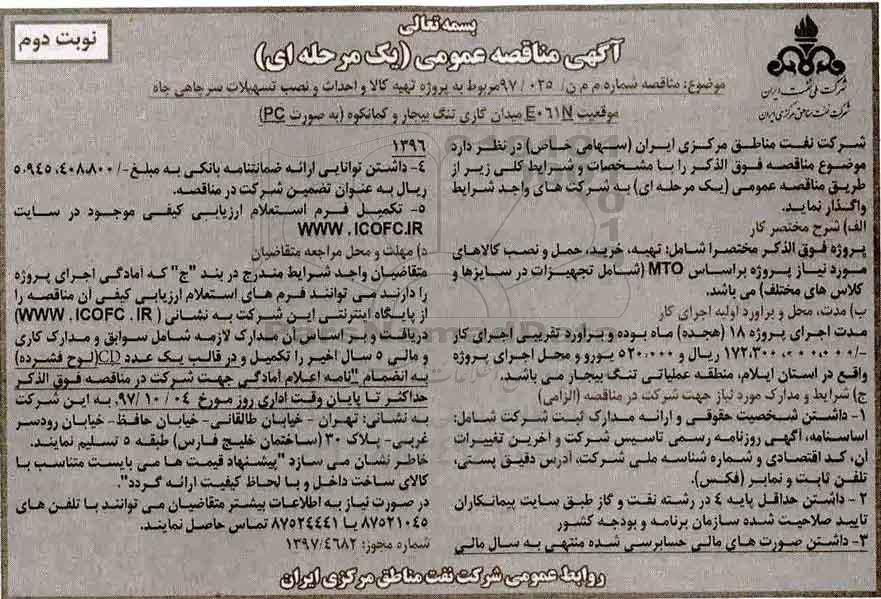 بسمه تعالی
نوبت دوم
آگهی مناقصه عمومی (یک مرحله ای)
شرکت ملی نفت ایران
شرکت نفت مناطق مرکزی ایران
موضوع: مناقصه شماره م م ن/ ۰۲۵ /۹۷ مربوط به پروژه تهیه کالا و احداث و نصب تسهیلات سرچاهی چاه
موقعیت E۰۶۱N میدان گازی تنگ بیجار و کمانکوه (به صورت PC)
شرکت نفت مناطق مرکزی ایران (سهامی خاص) در نظر دارد
موضوع مناقصه فوق الذکر را با مشخصات و شرایط کلی زیر از
طریق مناقصه عمومی (یک مرحله ای) به شرکت های واجد شرایط
واگذار نماید.
الف) شرح مختصر کار
پروژه فوق الذکر مختصرا شامل: تهیه، خرید، حمل و نصب کالاهای
مورد نیاز پروژه براساس MTO (شامل تجهیزات در سایزها و
کلاس های مختلف) می باشد.
ب) مدت، محل و براورد اولیه اجرای کار
مدت اجرای پروژه ۱۸ (هجده) ماه بوده و براورد تقریبی اجرای کار
-/۱۷۲،۳۰۰،۰۰۰،۰۰۰ ریال و ۵۲۰،۰۰۰ یورو و محل اجرای پروژه
واقع در استان ایلام، منطقه عملیاتی تنگ بیجار می باشد.
ج) شرایط و مدارک مورد نیاز جهت شرکت در مناقصه (الزامی)
۱- داشتن شخصیت حقوقی و ارائه مدارک ثبت شرکت شامل:
اساسنامه، آگهی روزنامه رسمی تاسیس شرکت و اخرین تغییرات
آن، کد اقتصادی و شماره شناسه ملی شرکت، آدرس دقیق پستی،
تلفن ثابت و نمابر (فکس).
۲- داشتن حداقل پایه ۴ در رشته نفت و گاز طبق سایت پیمانکاران
تایید صلاحیت شده سازمان برنامه و بودجه کشور
۳- داشتن صورت های مالی حسابرسی شده منتهی به سال مالی
۱۳۹۶
۴- داشتن توانایی ارائه ضمانتنامه بانکی به مبلغ -/۵،۹۴۵،۴۰۸،۸۰۰
ریال به عنوان تضمین شرکت در مناقصه.
۵- تکمیل فرم استعلام ارزیابی کیفی موجود در سایت
WWW.ICOFC.IR
د) مهلت و محل مراجعه متقاضیان
متقاضیان واجد شرایط مندرج در بند "ج" که آمادگی اجرای پروژه
را دارند می توانند فرم های استعلام ارزیابی کیفی آن مناقصه را
از پایگاه اینترنتی این شرکت به نشانی (WWW.ICOFC.IR)
دریافت و بر اساس آن مدارک لازمه شامل سوابق و مدارک کاری
و مالی ۵ سال اخیر را تکمیل و در قالب یک عدد CD(لوح فشرده)
به انضمام "نامه اعلام آمادگی جهت شرکت در مناقصه فوق الذکر
حداکثر تا پایان وقت اداری روز مورخ ۰۴ /۱۰ /۹۷ به این شرکت
به نشانی: تهران - خیابان طالقانی- خیابان حافظ- خیابان رودسر
غربی- پلاک ۳۰ (ساختمان خلیج فارس) طبقه ۵ تسلیم نمایند.
خاطر نشان می سازد "پیشنهاد قیمت ها می بایست متناسب با
کالای ساخت داخل و با لحاظ کیفیت ارائه گردد".
در صورت نیاز به اطلاعات بیشتر متقاضیان می توانند با تلفن های
۸۷۵۲۱۰۴۵ یا ۸۷۵۲۴۴۴۱ تماس حاصل نمایند.
شماره مجوز: ۱۳۹۷/۴۶۸۲
روابط عمومی شرکت نفت مناطق مرکزی ایران